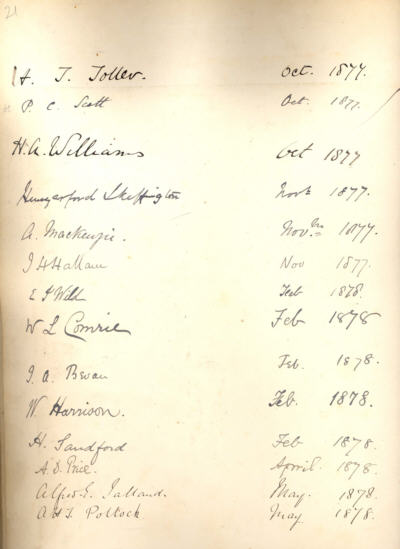 21
H. T. Toller. Oct. 1877.
P. C. Scott Oct. 1877.
H. A. Williams Oct 1877
Hungerford Skeffington Novr. 1877.
A. Mackenzie. Nov. 1877.
J H Hallam Nov 1877.
E J Wild Feb 1878.
W L Comrie Feb 1878
J. A. Bevan Feb. 1878.
W. Harrison. Feb. 1878.
H. Sandford Feb 1878.
A. D. Price. April. 1878.
Alfred E. Jalland. May. 1878.
A H J. Pollock May 1878.